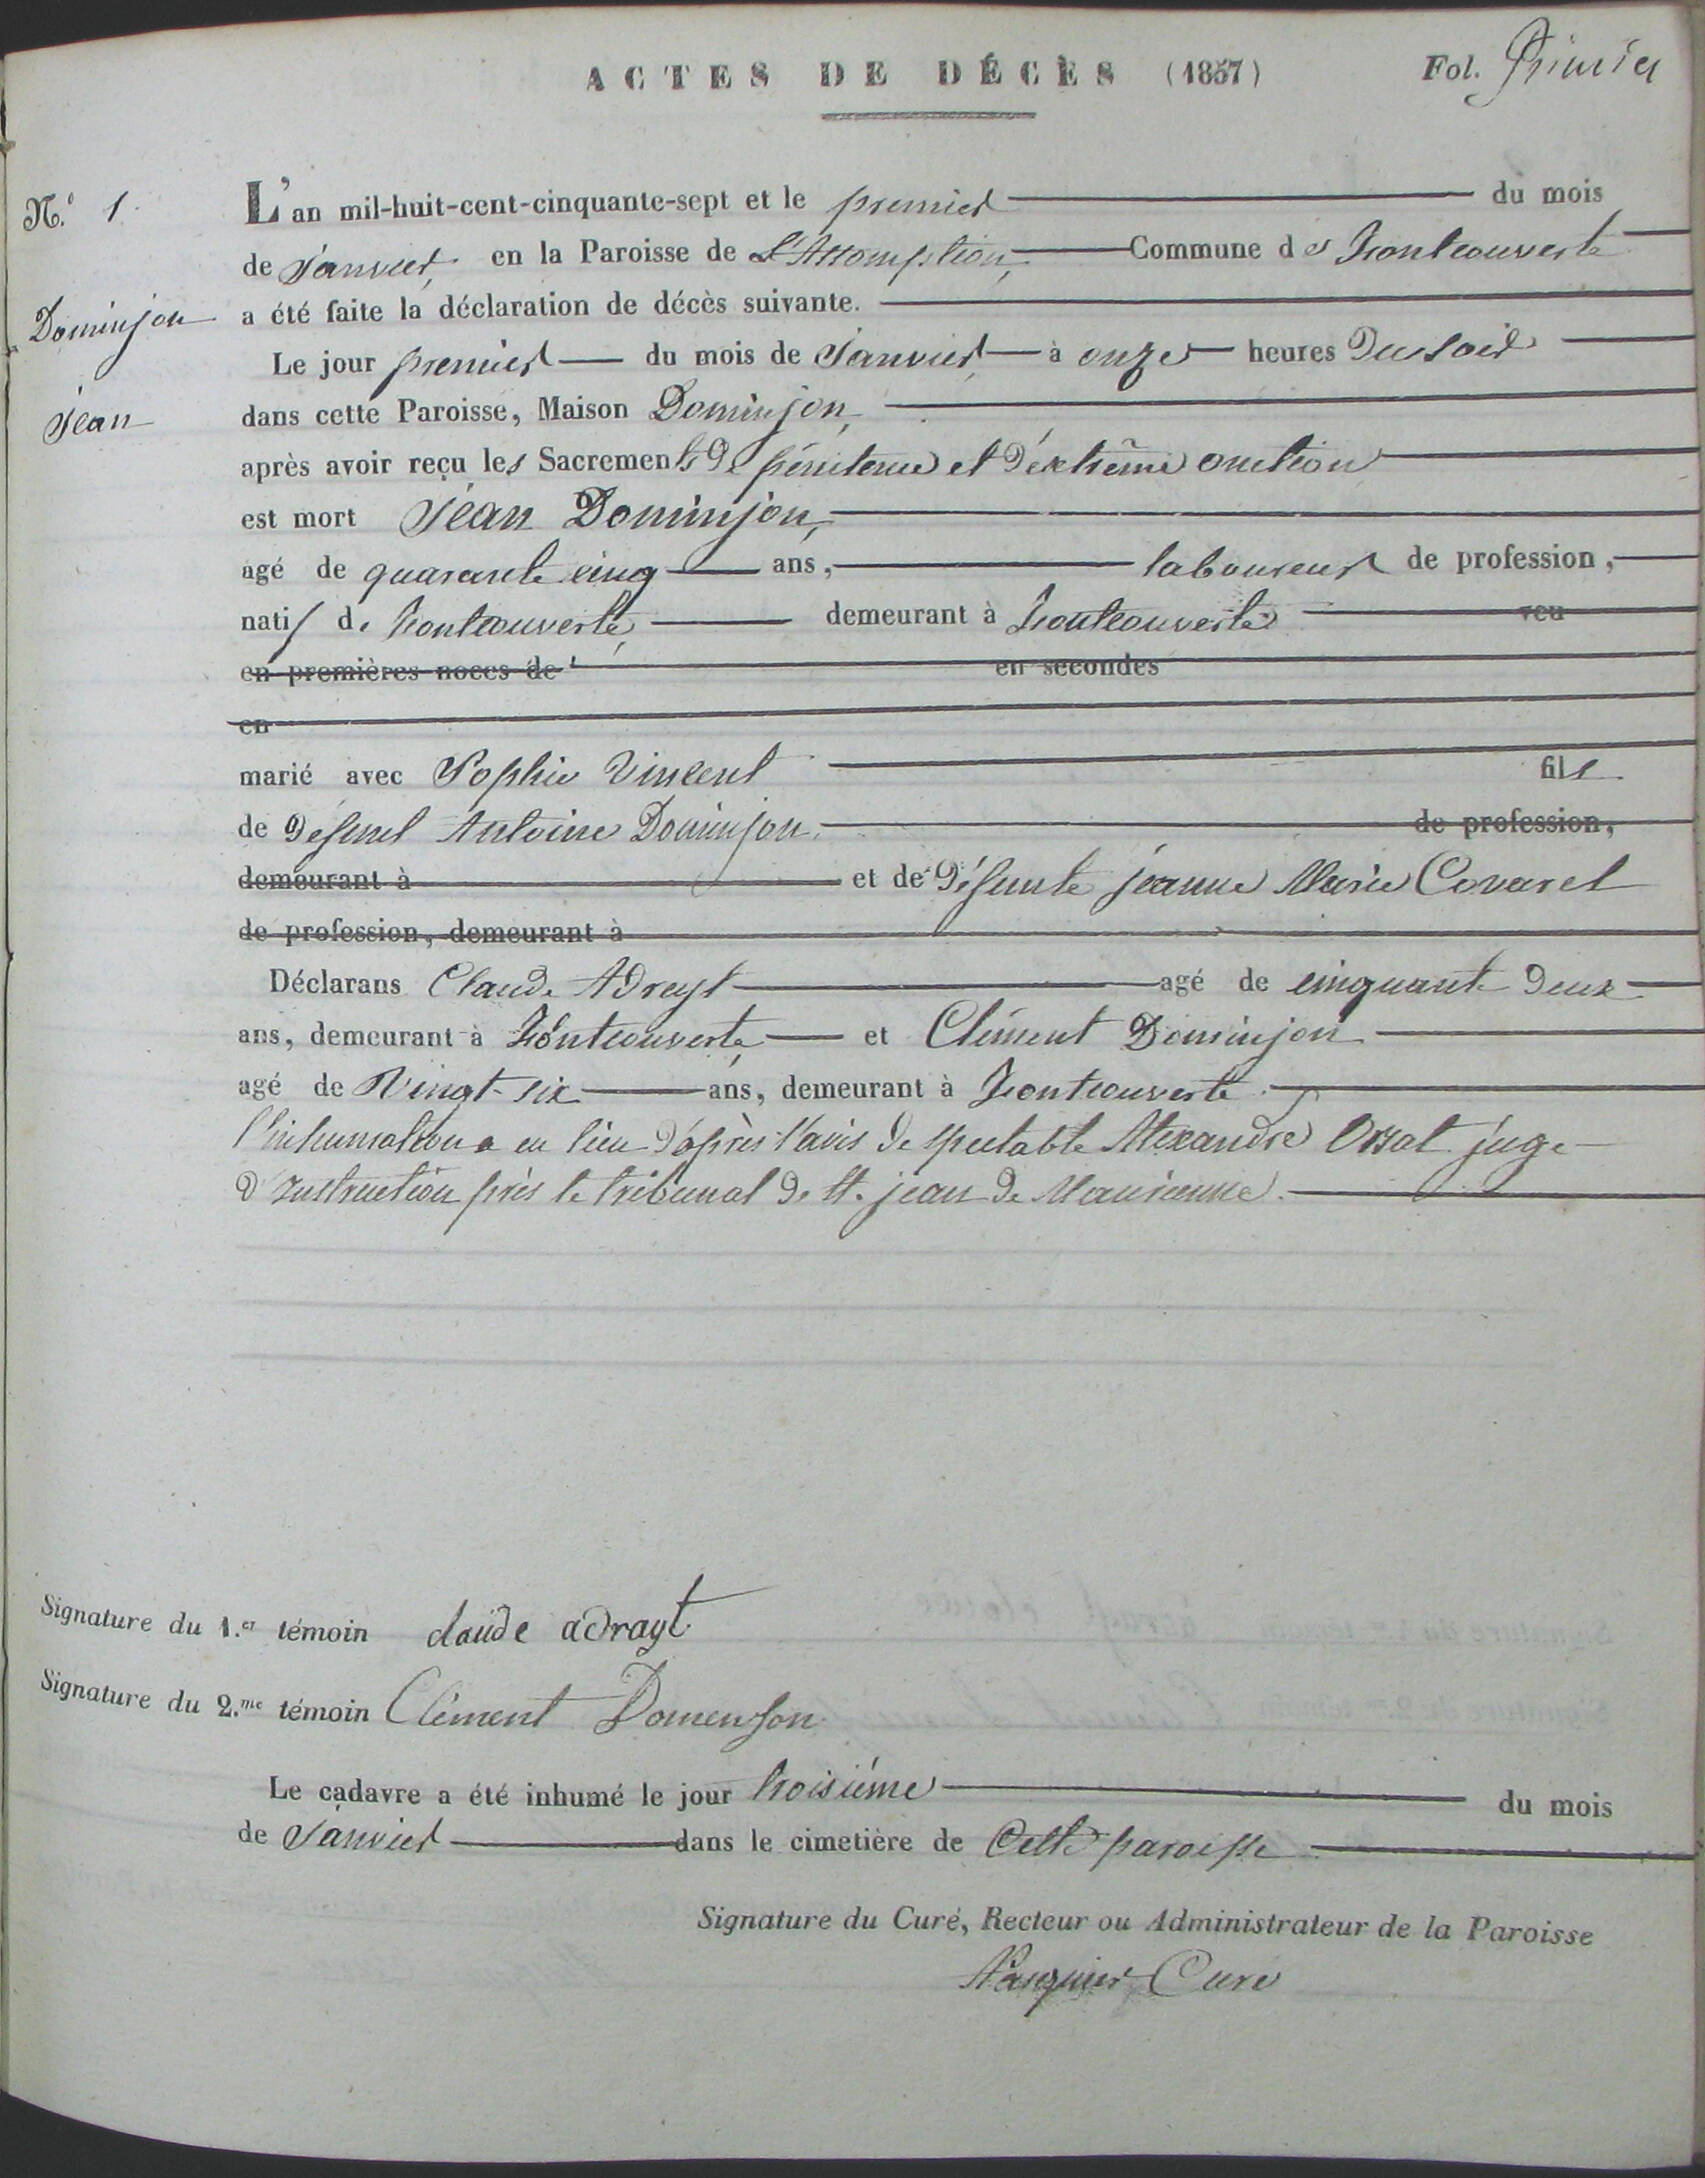 ACTES DE DÉCÈS (1857) Fol. Primier
N.º 1.
L'an mil-huit-cent-cinquante-sept et le premier du mois
de Janvier, en la Paroisse de L'Assomption, Commune de Fontcouverte
Dominjon
a été faite la déclaration de décès suivante.
Le jour premier du mois de Janvier à onze heures Du soir
Jean
dans cette Paroisse, Maison Dominjon,
après avoir reçu les Sacrements De pénitence et D'éxtrême onction
est mort Jean Dominjon,
agé de quarante cinq ans, laboureur de profession,
natif de Fontcouverte, demeurant à Fontcouverte veu
en premières noces de en secondes
en
marié avec Sophie Vincent fils
de Défunt Antoine Dominjon. de profession,
demeurant à et de Défunte jeanne Marie Covarel
de profession, demeurant à
Déclarans Claude Adrayt agé de cinquante Deux
ans, demeurant à Fontcouverte, et Clément Dominjon
agé de Vingt-six ans, demeurant à Fontcouverte.
l'inhumation a eu lieu D'après l'avis De spectable Alexandre Orsat juge
D'Instruction près le tribunal De St. jean De Maurienne.
Signature du 1.er témoin claude adrayt
Signature du 2.me témoin Clément Domenjon
Le cadavre a été inhumé le jour troisième du mois
de Janvier dans le cimetière de Cette paroisse
Signature du Curé, Recteur ou Administrateur de la Paroisse
Curé